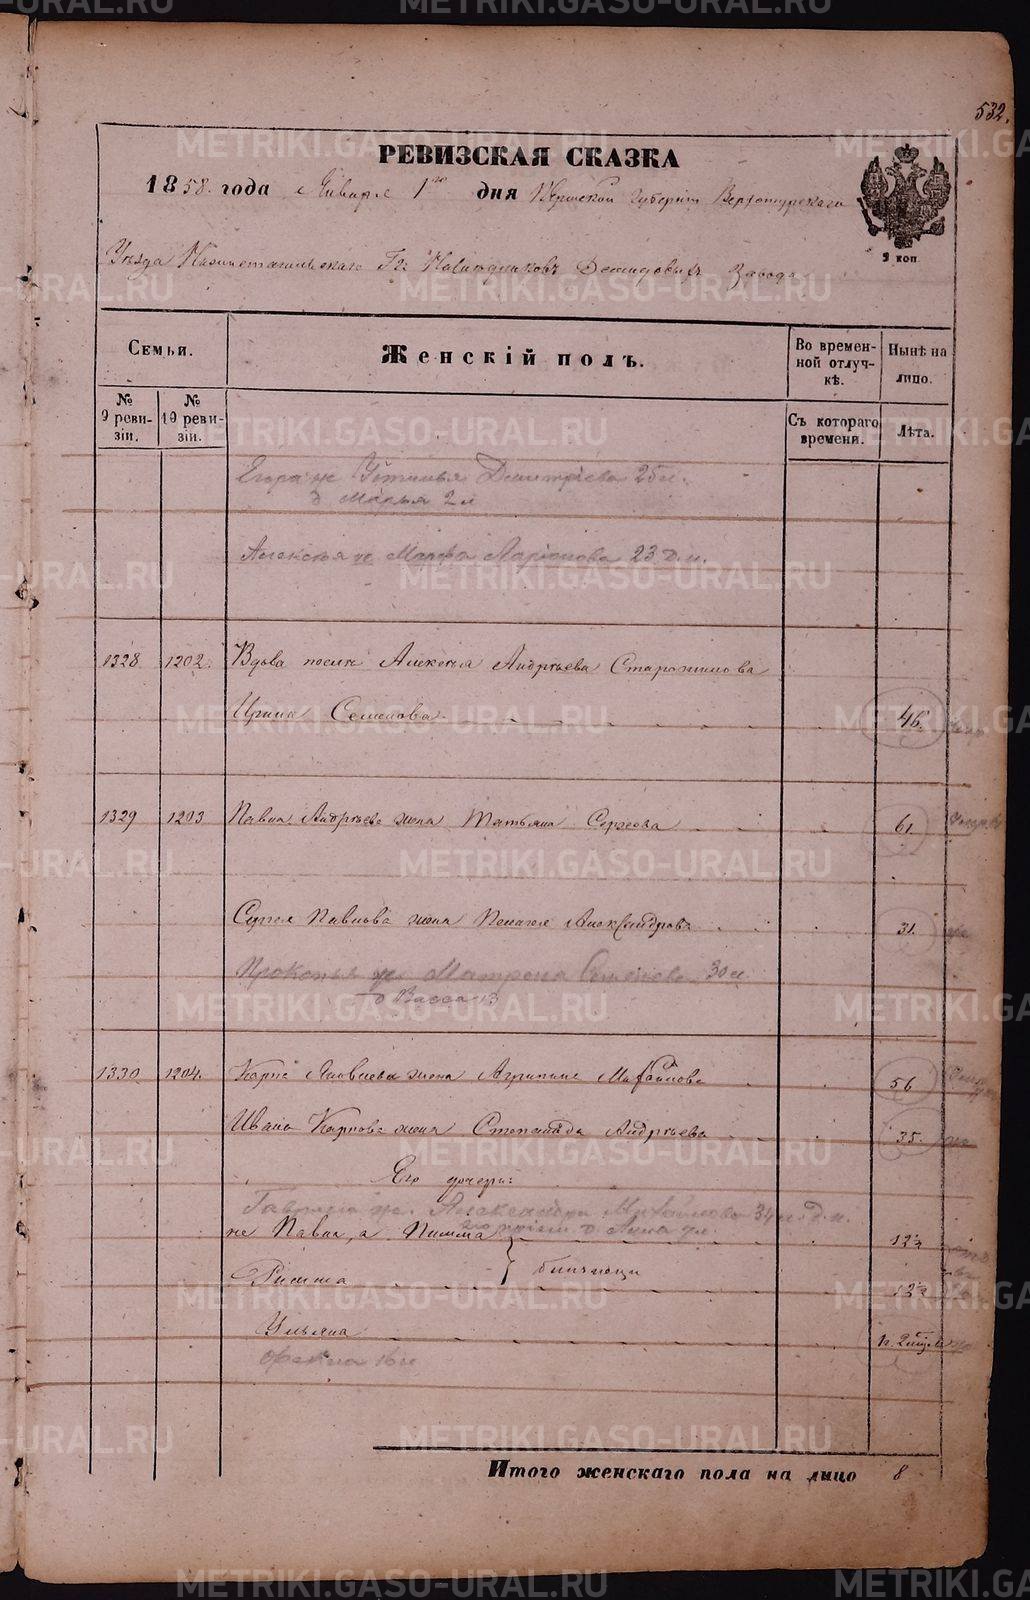 532.
РЕВИЗСКАЯ СКАЗКА
1858. года Января 1го дня Пермской Губернiи Верхотурскаго
9 коп.
Уѣзда Нижнетагильскаго Гг. Наслѣдниковъ Демидовыхъ Завода
Семьи. Женскій полъ. Во временной отлучкѣ. Нынѣ на лицо.
№ 9 ревизіи. № 10 ревизіи. Съ котораго времени. Лѣта.
Егора ж Устинья Дмитріева 25 л.
д Марья 2 л
Алексѣя ж Марфа Ларіонова 23 д.
1328 1202. Вдова послѣ Алексѣя Андрѣева Старожилова
Ирина Семенова 46.
1329 1203 Павла Андрѣева жена Татьяна Сергѣева 61.
Сергея Павлова жена Пелагея Александрова 31.
Прокопья ж. Матрена Семенова 30 л.
д Васса 13
1330 1204. Карпа Яковлева жена Агрипина Михайлова 56
Ивана Карпова жена Степанида Андрѣева 35.
Его дочери:
Гаврила ж. Александра Михайлова 34 л. д. л.
не Павла, а д. Анна 7 л. 12½
близнецы
12½
Ульяна
Фекла 16 л
Итого женскаго пола на лицо 8
METRIKI.GASO-URAL.RU